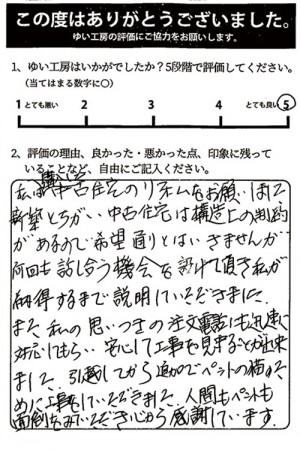 この度はありがとうございました。
ゆい工房の評価にご協力をお願いします。
1、ゆい工房はいかがでしたか?5段階で評価してください。
(当てはまる数字に○)
1 とても悪い 2 3 4 とても良い 5
2、評価の理由、良かった・悪かった点、印象に残って
いることなど、自由にご記入ください。
購入した
私は中古住宅のリフォームをお願いしました
新築とちがい、中古住宅は構造上の制約
があるので希望通りとはいきませんが
何回も話し合う機会を設けて頂き私が
納得するまで説明していただきました。
また、私の思いつきの注文電話にも迅速に
対応してもらい、安心して工事を見守ることが出来
ました。引越してから追加でペットの猫のた
めに工事をしていただきました。人間もペットも
面倒をみていただき心から感謝しています。